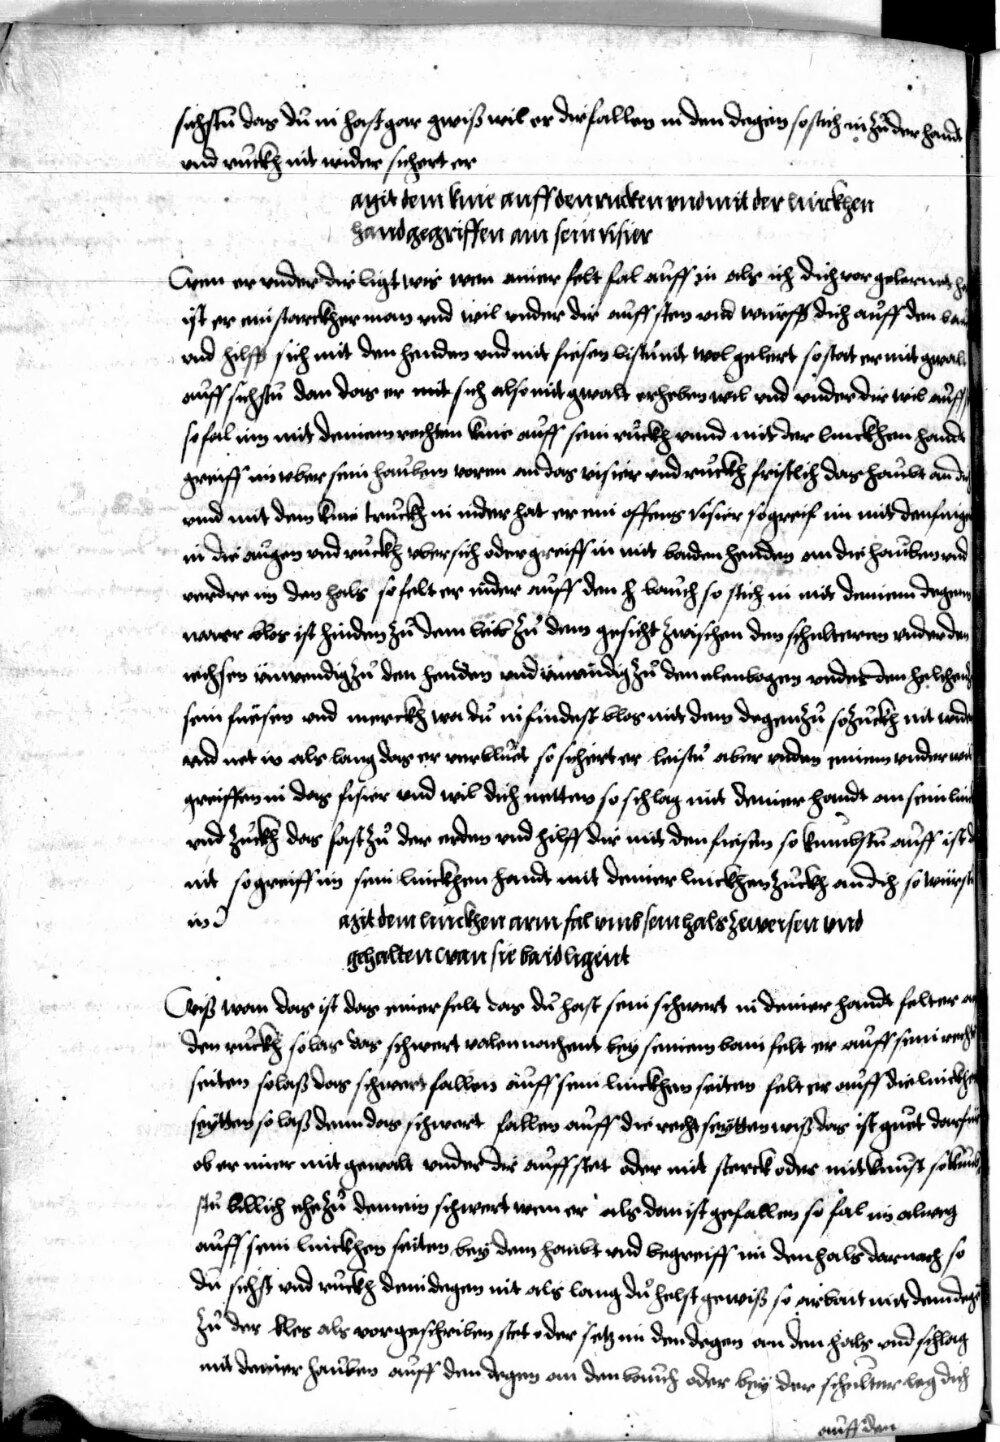 sichstu das du in hast gar gwiß wil er dir fallen in den degen so stich in zů der handt
und ruckh nit wider sichert er
Mit dem knie auff den rucken und mit der linckhen
hand gegriffen am sein visier
Wen er under dir ligt wis wen ainer felt fal auff in als ich dich vor gelernet
ist er ein starckher man und wil under dir auff sten und würfft dich auff den
und hilfft sich mit den henden und mit fiesen bistu nit wol gelert so stat er mit gwalt
auff sichstu dan das er mit sich also mit gwalt erheben wil und under dir wil auff
so fal im mit deinem rechten knie auff sein ruckh unnd mit der linckhen handt
greiff im uber sein hauben voren an das visier und ruckh fristlich das haubt an dich
unnd mit dem knie truckh in nider hat er ein offens visier so greif im mit den finger
in die augen und ruckh ubersich oder greiff in mit baiden henden an die hauben und
verdre im den hals so felt er nider auff den bauch so stich in mit deinem degen
wa er blos ist hinden zů dem leib zů dem gesicht zwischen den schulteren under den
iechsen inwendig zů den henden und inwendig zů dem elenbogen under den
sein fiesen und merckh wa du in findest blos mit dem degen zů so zuckh nit wider
und net in als lang das er verbluet so sichert er leistu aber unden einem under und
greiffen in das fisier und wil dich netten so schlag mit deiner handt an sein
und zuckh das fast zů der erden und hilff dir mit den fiesen so kumbstu auff ist
nit so greiff im sein linckhen handt mit deiner linckhen zuckh an dich so würfstu
in
Mit dem linckhen arm fal umb sein hals zewersen und
gehalten wan sie baid ligent
Wiß wan das ist das einer felt das du hast sein schwert in deiner handt felt er an
den ruckh so las das schwert valen nachent bey seinem bain felt er auff sein recht
seiten so laß das schwert fallen auff sein linckhen seiten felt er auff die linckhen
seytten so laß denn das schwert fallen auff die recht seytten wiß das ist guet darfür
ob er imer mit gewalt under dir auff stat oder mit sterck oder mit kunst so kumb
stu billich ehe zů deinem schwert wen er als dan ist gefallen so fal im alweg
auff sein linckhen seiten bey dem haubt und begreiff im den hals darnach so
du sichst und ruckh dein degen nit als lang du helst gewiß so arbait mit dem degen
zů der bles als vorgeschriben stet oder setz im den degen an den hals und schlag
mit deiner hauben auff den degen an den bauch oder bey der schulter leg dich
auff den